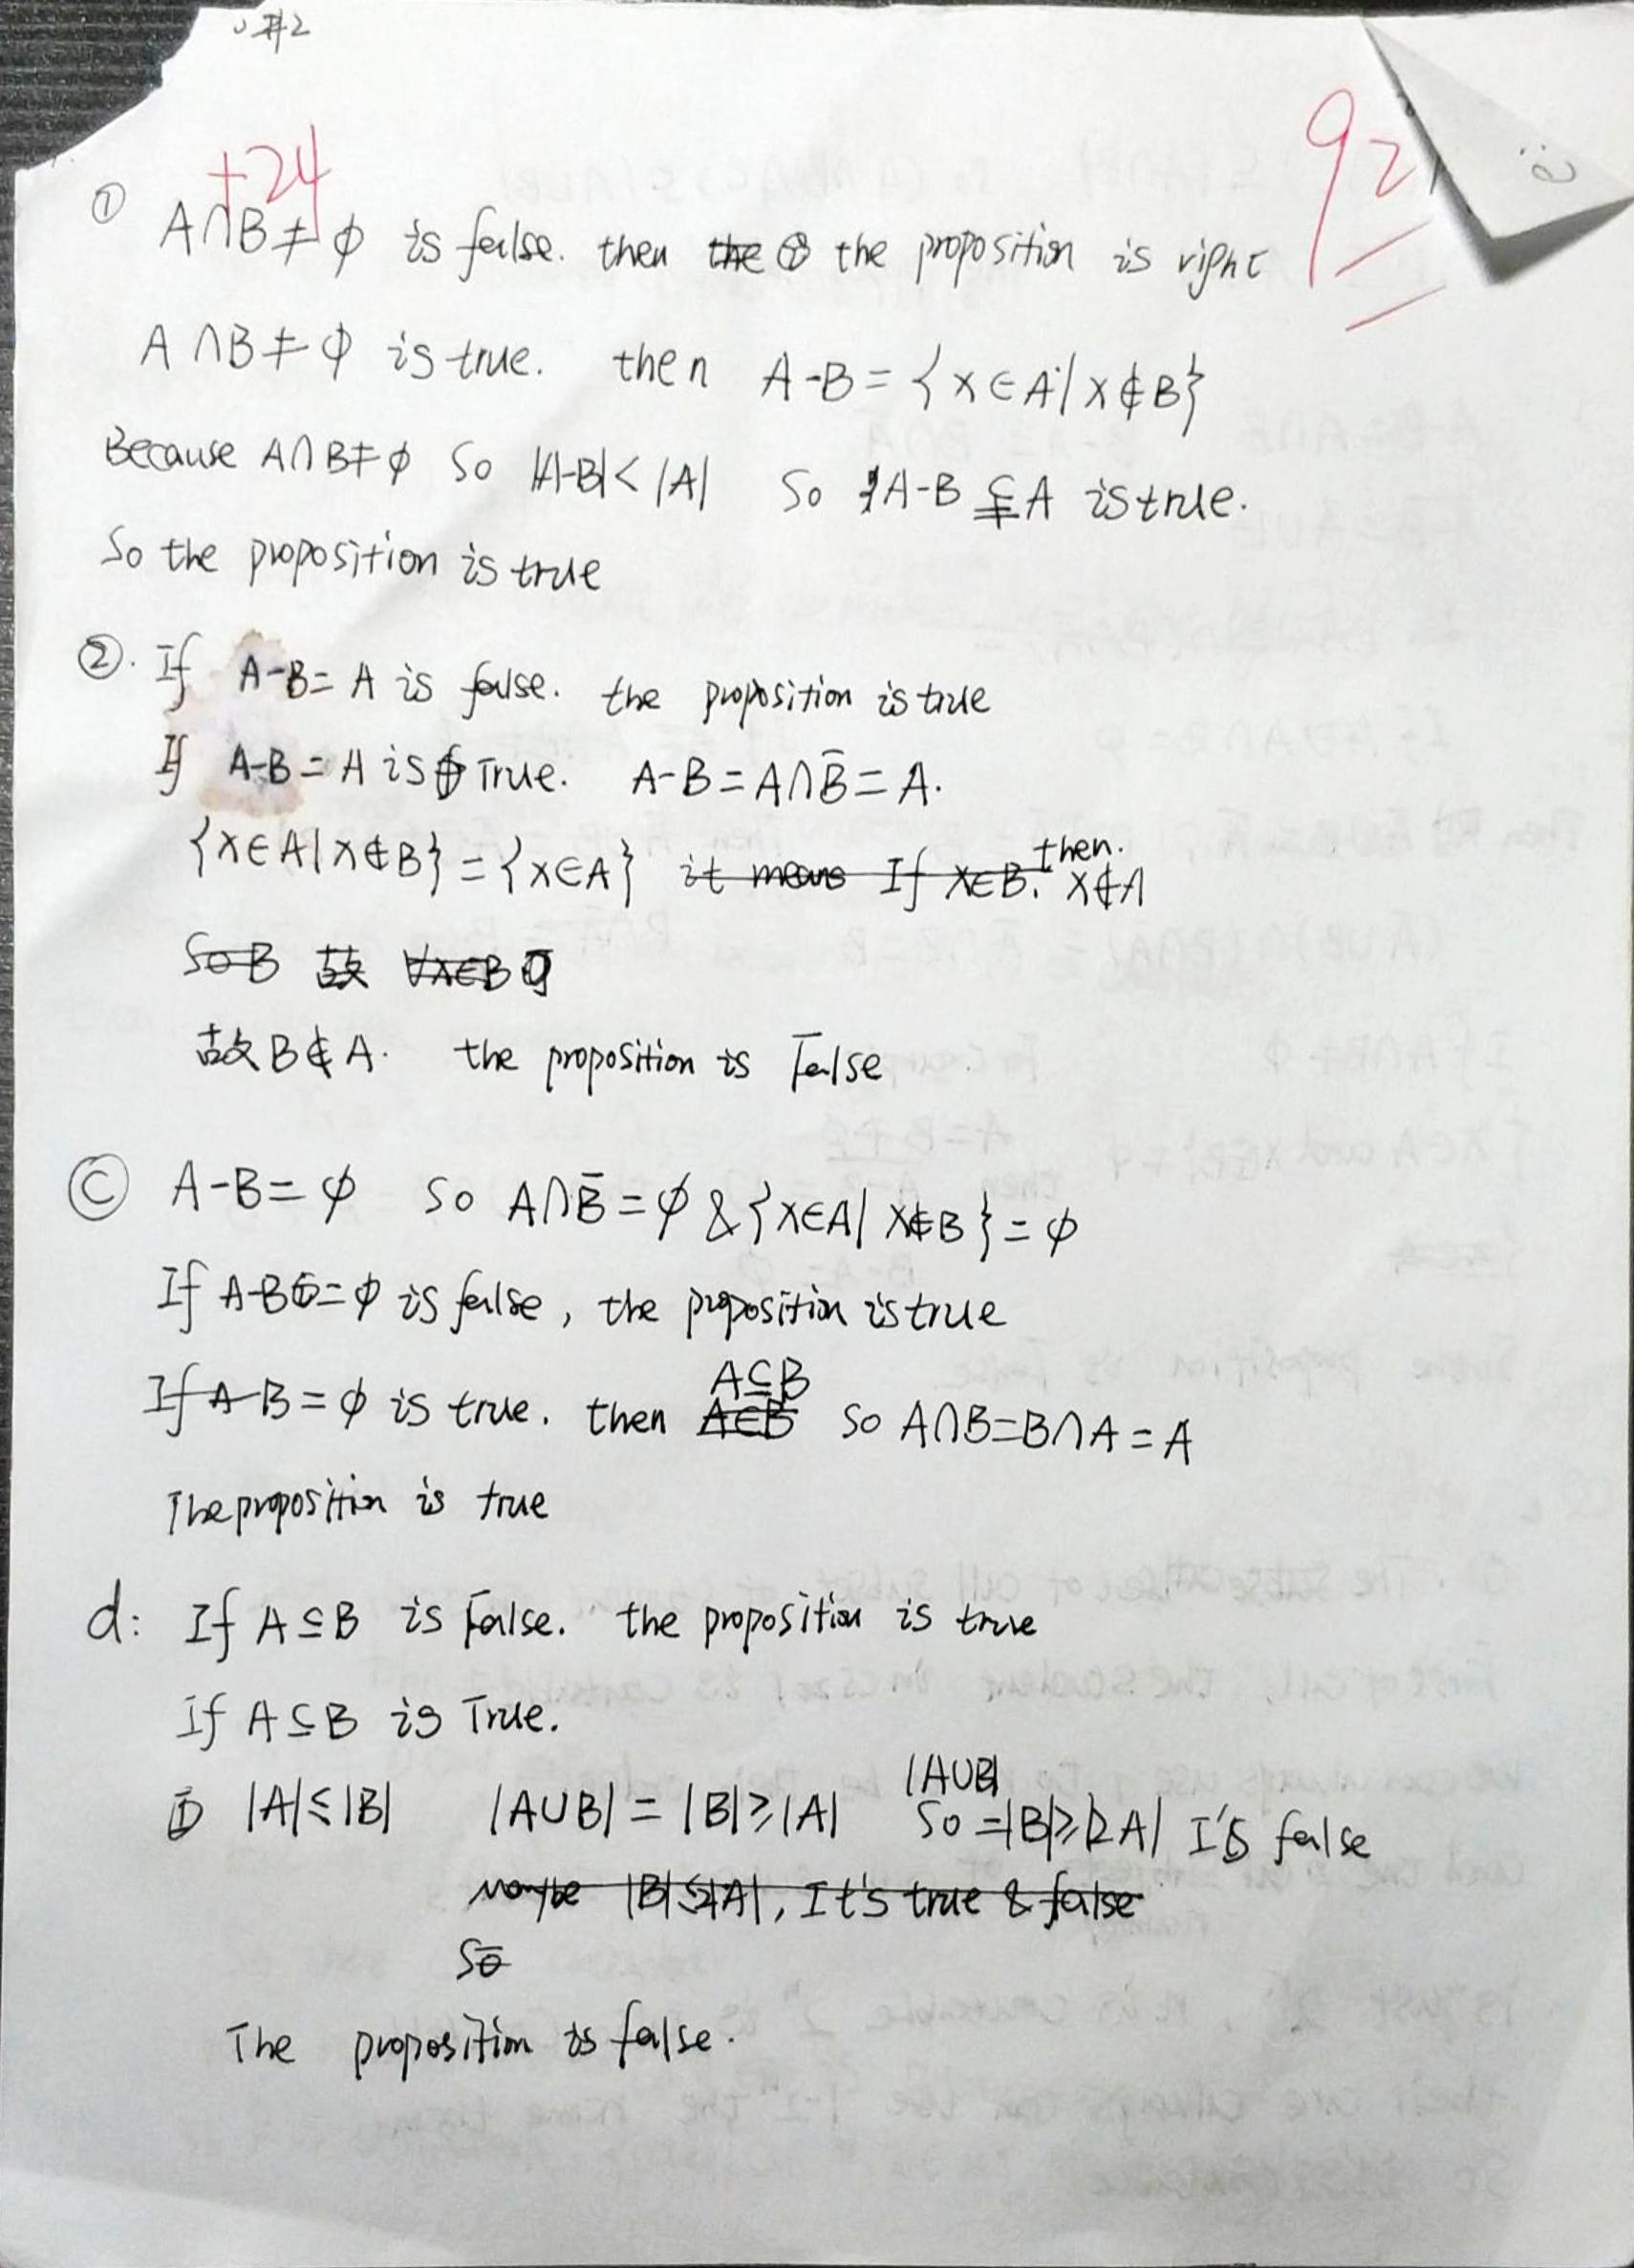 #2
+24
92
① A∩B≠ϕ is false. then the the proposition is right
A∩B≠ϕ is true. then A-B={x∈A|x∉B}
Because A∩B≠ϕ So |A-B|<|A| So A-B⊊A is true.
So the proposition is true
②. If A-B=A is false. the proposition is true
If A-B=A is True. A-B=A∩B̄=A.
{x∈A|x∉B}={x∈A} it means If x∈B. then. x∉A
So B 故 ∀x∈B
故B∉A. the proposition is False
Ⓒ A-B=ϕ so A∩B̄=ϕ & {x∈A|x∉B}=ϕ
If A-B=ϕ is false, the proposition is true
If A-B=ϕ is true. then A∈B A⊆B so A∩B=B∩A=A
The proposition is true
d: If A⊆B is False. the proposition is true
If A⊆B is True.
① |A|≤|B| |A∪B|=|B|≥|A| So |A∪B|=|B|≥|2A| I's false
maybe |B|≤|A|, It's true & false
So
The proposition is false.